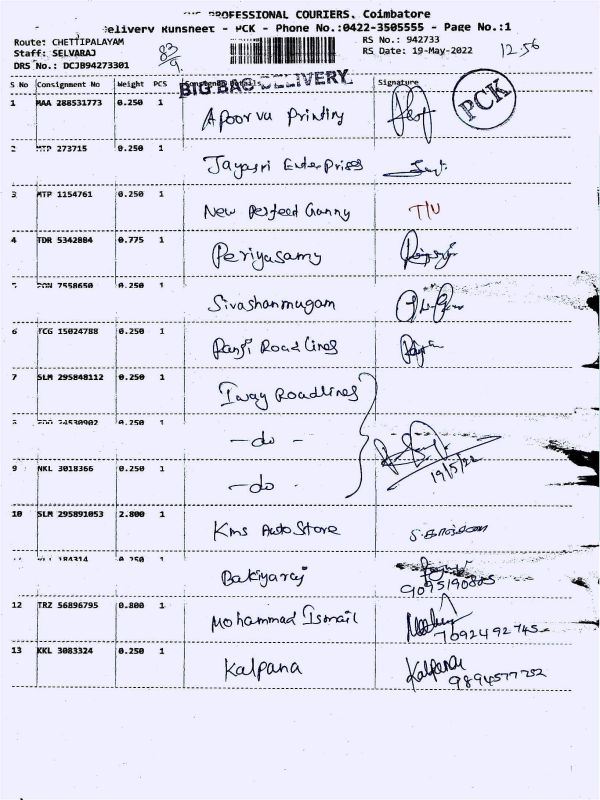 PROFESSIONAL COURIERS. Coimbatore
elivery Runsheet - PCK - Phone No.:0422-3505555 - Page No.:1
Route: CHETTIPALAYAM RS No.: 942733
Staff: SELVARAJ RS Date: 19-May-2022 12.56
DRS No.: DCJB94273301
BIG BAG DELIVERY
S No Consignment No Weight PCS Signature
PCK
1 MAA 288531773 0.250 1 Apoorva Printing
2 MTP 273715 0.250 1 Jayasri Enterprises
3 MTP 1154761 0.250 1 New Perfect Gunny T/U
4 TDR 5342884 0.775 1 Periyasamy
7558650 0.250 1 Sivashanmugam
6 TCG 15024788 0.250 1 Ranji Road Lines
7 SLM 295848112 0.250 1 Iway Roadlines
34530902 0.250 1 - do -
19/5/22
9 NKL 3018366 0.250 1 - do -
10 SLM 295891053 2.800 1 Kms Auto Store
184314 0.250 1 Bakiyaraj
9095190805
12 TRZ 56896795 0.800 1 Mohammad Ismail
7092492745
13 KKL 3083324 0.250 1 Kalpana Kalpana
9894577252